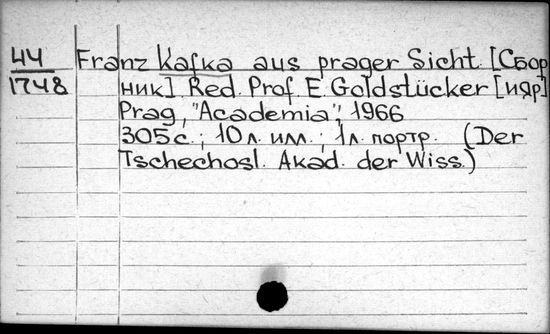 44
1748
Franz Kafka aus prager Sicht. [Сбор
ник] Red. Prof. E. Goldstücker [и др]
Prag, "Academia", 1966
305 с.; 10 л. илл.; 1 л. портр. (Der
Tschechosl. Akad. der Wiss.)